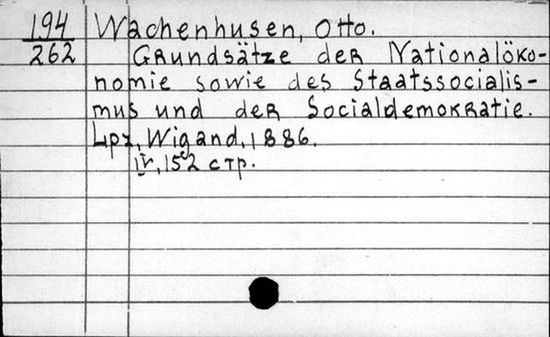 194 Wachenhusen, Otto.
262 Grundsätze der Nationalöko-
nomie sowie des Staatssocialis-
mus und der Socialdemokratie.
Lpz, Wigand, 1886.
IV, 152 стр.